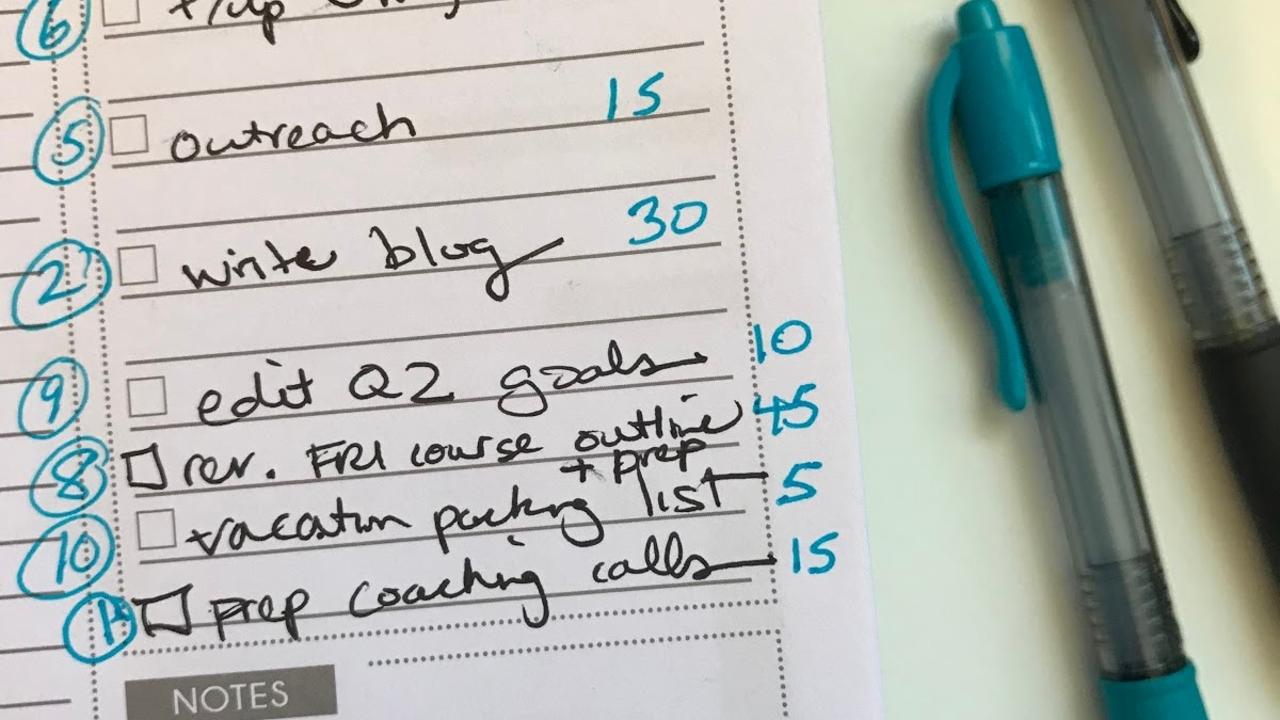 6
5 outreach 15
2 write blog 30
9 edit Q2 goals 10
8 rev. FRI course outline 45
+ prep
10 vacation packing list 5
prep coaching calls 15
NOTES